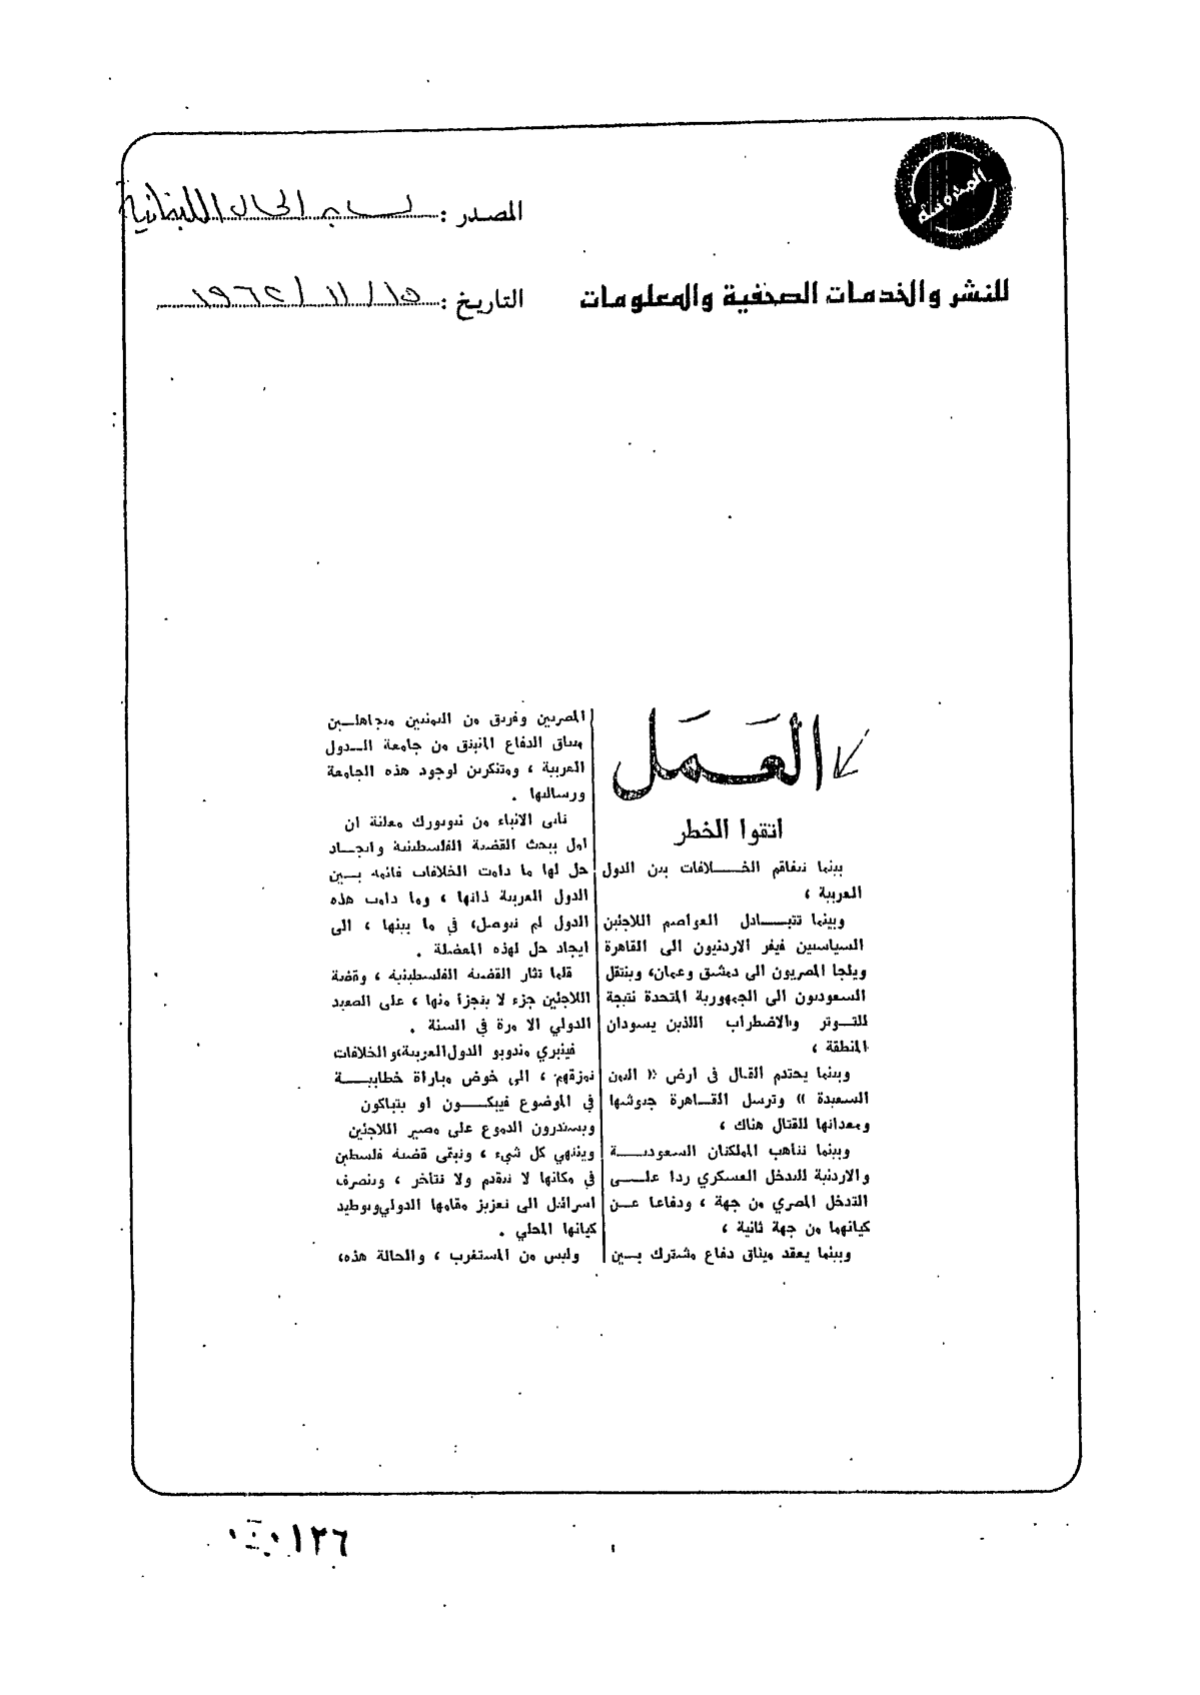 المحروسة
المصدر : لسان الحال اللبنانية
للنشر والخدمات الصحفية والمعلومات
التاريخ : ١٩٦٢/١١/١٥
العَمَل
اتقوا الخطر
بينما تتفاقم الخــلافات بين الدول
العربية ،
وبينما تتبــادل العواصم اللاجئين
السياسيين فيفر الاردنيون الى القاهرة
ويلجا المصريون الى دمشق وعمان، وينتقل
السعوديون الى الجمهورية المتحدة نتيجة
للتــوتر والاضطراب اللذين يسودان
المنطقة ،
وبينما يحتدم القتال في ارض « اليمن
السعيدة » وترسل القــاهرة جيوشها
ومعداتها للقتال هناك ،
وبينما تتأهب المملكتان السعوديــة
والاردنية للتدخل العسكري ردا علــى
التدخل المصري من جهة ، ودفاعا عــن
كيانهما من جهة ثانية ،
وبينما يعقد ميثاق دفاع مشترك بــين
المصريين وفريق من اليمنيين متجاهلــين
ميثاق الدفاع المنبثق من جامعة الــدول
العربية ، ومتنكرين لوجود هذه الجامعة
ورسالتها .
تأتي الانباء من نيويورك معلنة ان
امل ببحث القضية الفلسطينية وايجــاد
حل لها ما دامت الخلافات قائمة بــين
الدول العربية ذاتها ، وما دامت هذه
الدول لم تتوصل، في ما بينها ، الى
ايجاد حل لهذه المعضلة .
قلما تثار القضية الفلسطينية ، وقضية
اللاجئين جزء لا يتجزأ منها ، على الصعيد
الدولي الا مرة في السنة .
فينبري مندوبو الدول العربية، والخلافات
تمزقهم ، الى خوض مباراة خطابيــة
في الموضوع فيبكــون او يتباكون
ويستدرون الدموع على مصير اللاجئين
وينتهي كل شيء ، وتبقى قضية فلسطين
في مكانها لا تتقدم ولا تتأخر ، وتنصرف
اسرائيل الى تعزيز مقامها الدولي وتوطيد
كيانها المحلي .
وليس من المستغرب ، والحالة هذه،
١٢٦